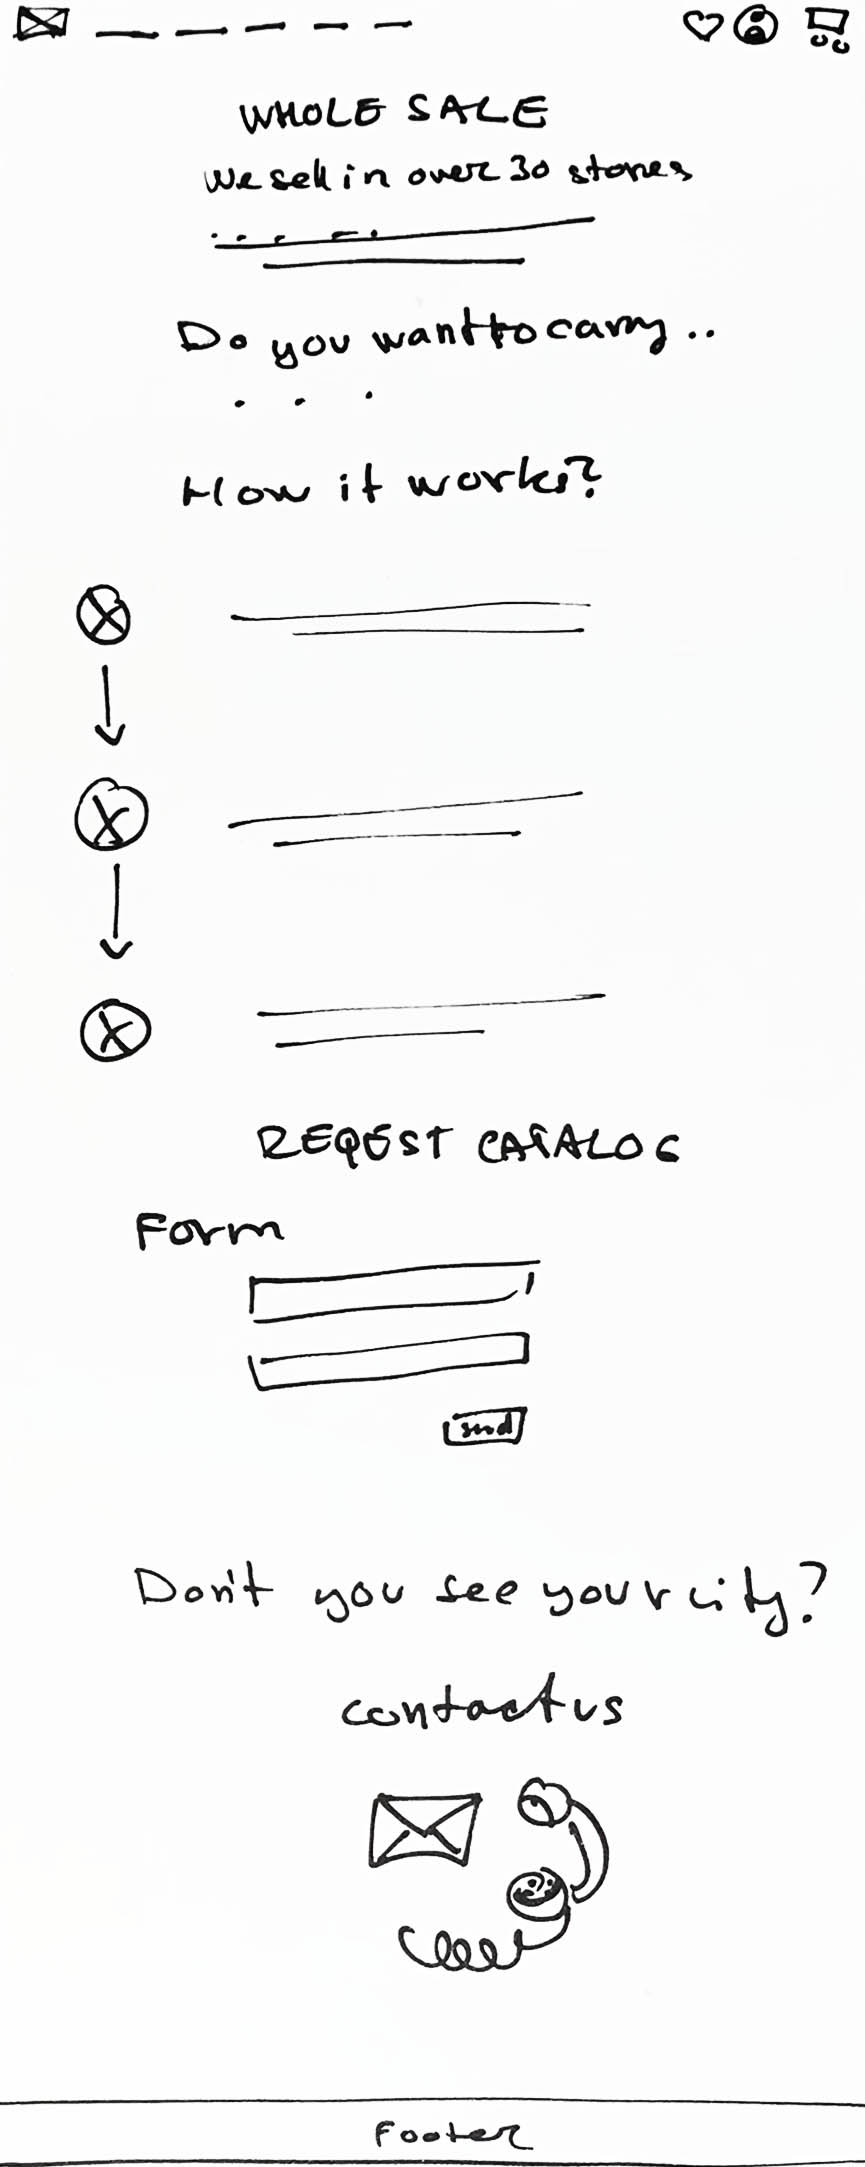 WHOLE SALE
We sell in over 30 stores
Do you want to carry..
. . .
How it works?
REQEST CATALOG
Form
send
Don't you see your city?
contact us
Footer